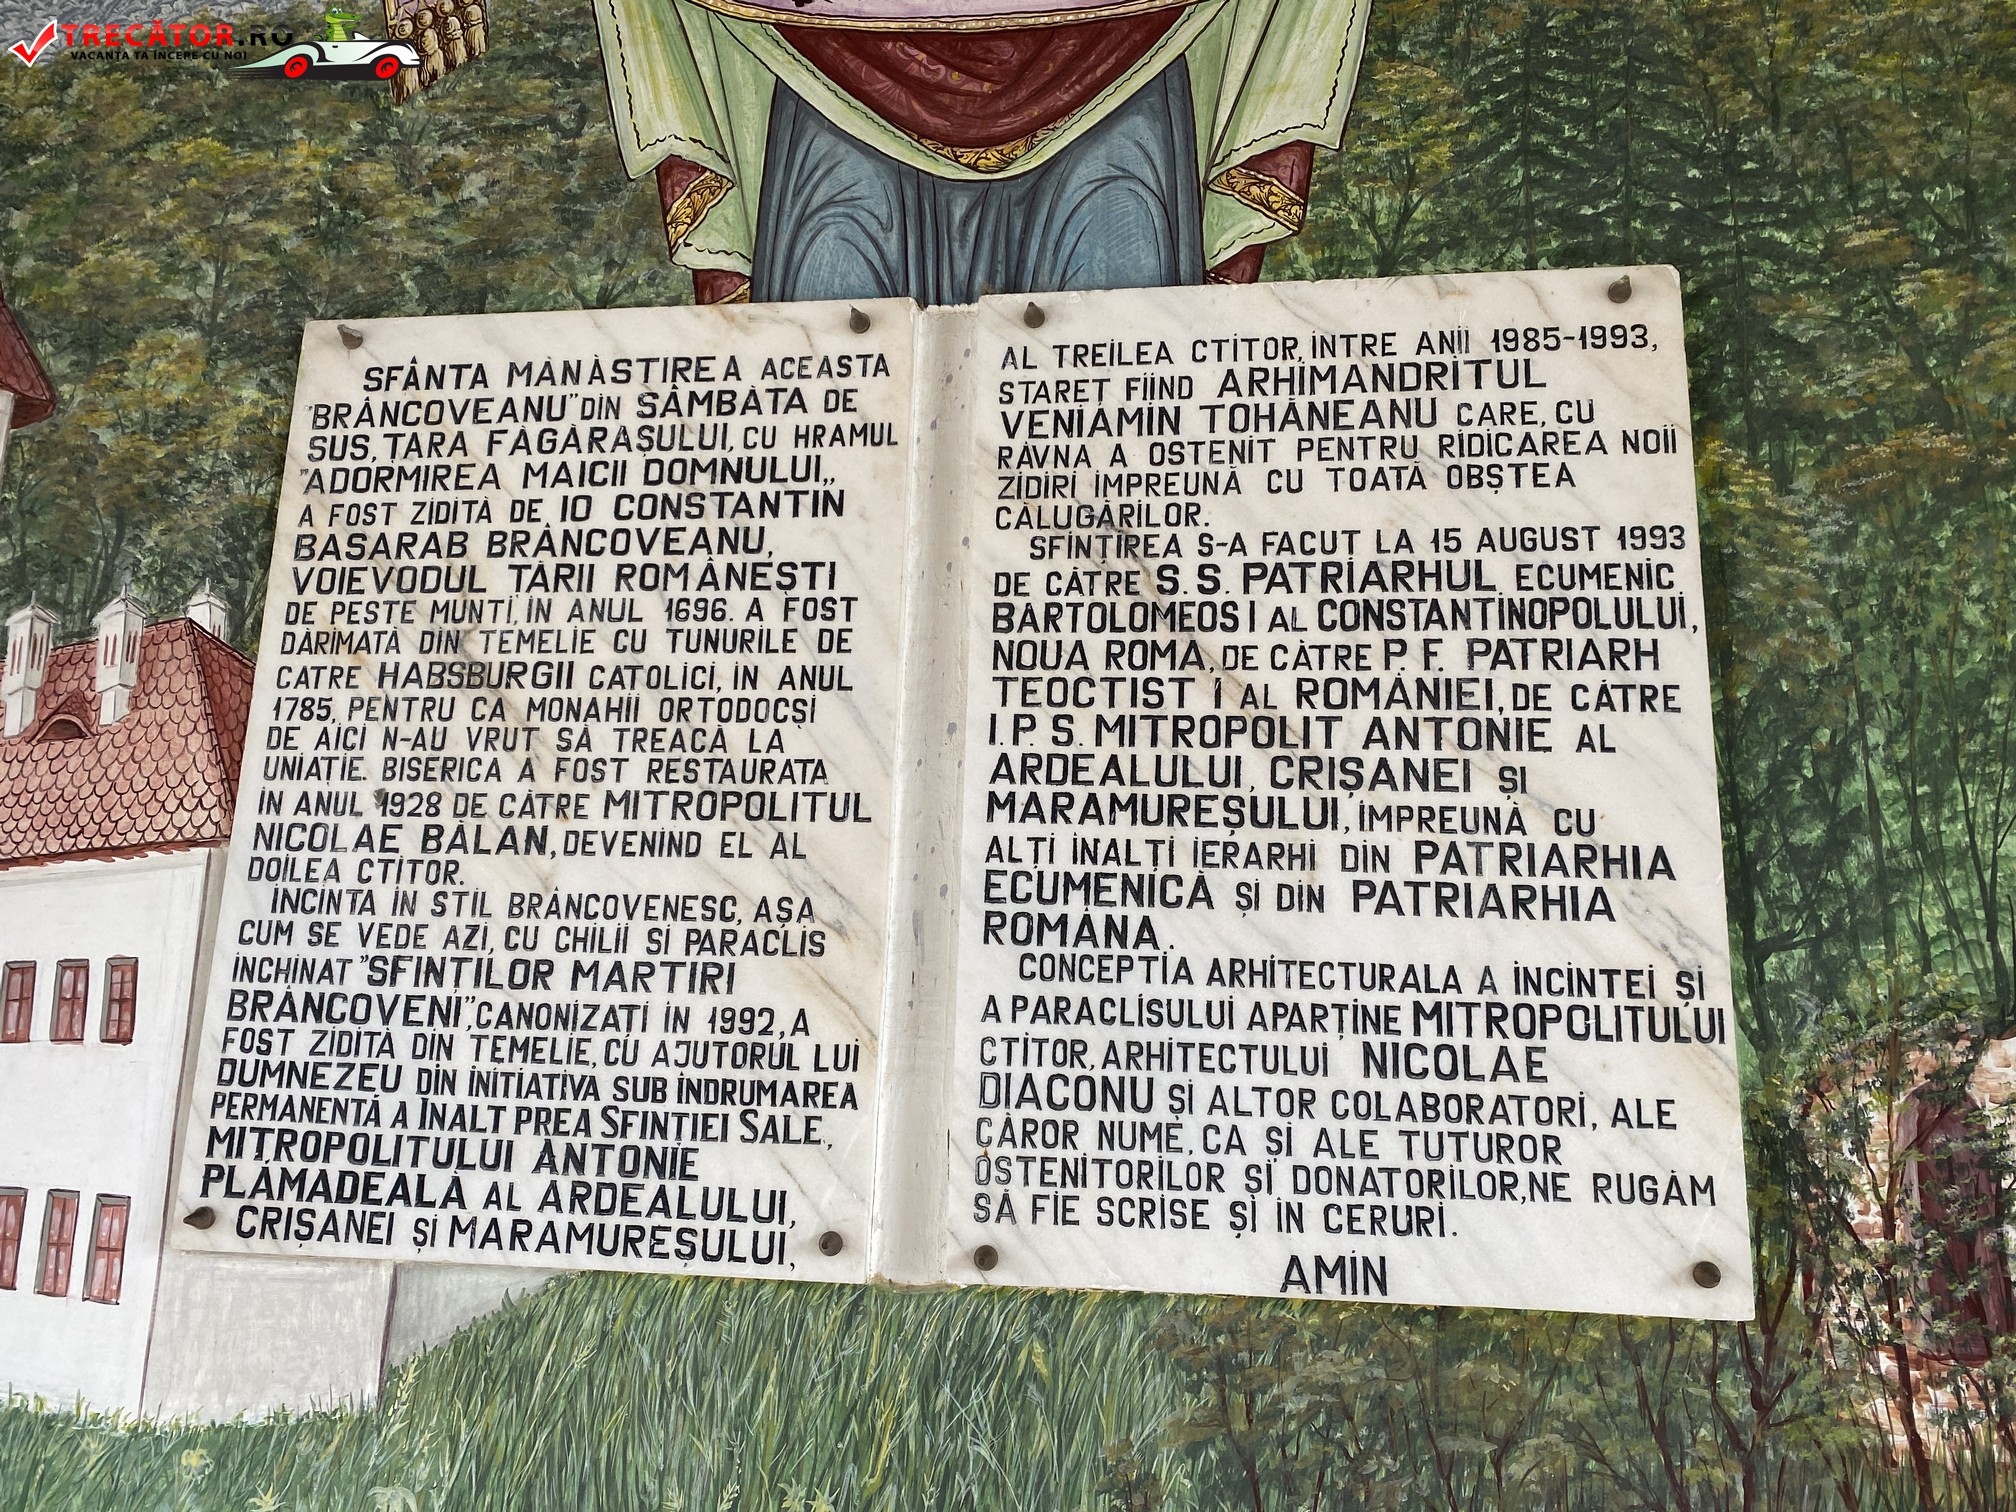 TRECĂTOR.RO
VACANȚA TA ÎNCEPE CU NOI
SFÂNTA MÀNÀSTIREA ACEASTA
"BRÂNCOVEANU" DIN SÂMBÀTA DE
SUS, TARA FÀGÀRAȘULUI, CU HRAMUL
"ADORMIREA MAICII DOMNULUI,,
A FOST ZIDITÀ DE IO CONSTANTIN
BASARAB BRÂNCOVEANU,
VOIEVODUL TÀRII ROMÂNEȘTI
DE PESTE MUNTI, IN ANUL 1696. A FOST
DÀRIMATÀ DIN TEMELIE CU TUNURILE DE
CATRE HABSBURGII CATOLICI, IN ANUL
1785, PENTRU CA MONAHII ORTODOCȘI
DE AICI N-AU VRUT SÀ TREACÀ LA
UNIAȚIE. BISERICA A FOST RESTAURATA
IN ANUL 1928 DE CÀTRE MITROPOLITUL
NICOLAE BÀLAN, DEVENIND EL AL
DOILEA CTITOR.
INCINTA IN STIL BRÂNCOVENESC, AȘA
CUM SE VEDE AZI, CU CHILII SI PARACLIS
INCHINAT "SFINȚILOR MARTIRI
BRÂNCOVENI", CANONIZAȚI IN 1992, A
FOST ZIDITÀ DIN TEMELIE, CU AJUTORUL LUI
DUMNEZEU DIN INITIATIVA SUB INDRUMAREA
PERMANENTÀ A INALT PREA SFINȚIEI SALE,
MITROPOLITULUI ANTONIE
PLÀMADEALÀ AL ARDEALULUI,
CRIȘANEI ȘI MARAMUREȘULUI,
AL TREILEA CTITOR, INTRE ANII 1985-1993,
STAREȚ FIIND ARHIMANDRITUL
VENIAMIN TOHÀNEANU CARE, CU
RÂVNA A OSTENIT PENTRU RIDICAREA NOII
ZIDIRI IMPREUNÀ CU TOATÀ OBȘTEA
CÀLUGÀRILOR.
SFINȚIREA S-A FACUT LA 15 AUGUST 1993
DE CÀTRE S.S. PATRIARHUL ECUMENIC
BARTOLOMEOS I AL CONSTANTINOPOLULUI,
NOUA ROMA, DE CÀTRE P. F. PATRIARH
TEOCTIST I AL ROMÂNIEI, DE CÀTRE
I.P.S. MITROPOLIT ANTONIE AL
ARDEALULUI, CRIȘANEI ȘI
MARAMUREȘULUI, IMPREUNÀ CU
ALȚI INALȚI IERARHI DIN PATRIARHIA
ECUMENICÀ ȘI DIN PATRIARHIA
ROMÂNA.
CONCEPȚIA ARHITECTURALA A INCINTEI ȘI
A PARACLISULUI APARȚINE MITROPOLITULUI
CTITOR, ARHITECTULUI NICOLAE
DIACONU ȘI ALTOR COLABORATORI, ALE
CÀROR NUME, CA ȘI ALE TUTUROR
OSTENITORILOR ȘI DONATORILOR, NE RUGÀM
SÀ FIE SCRISE ȘI IN CERURI.
AMIN